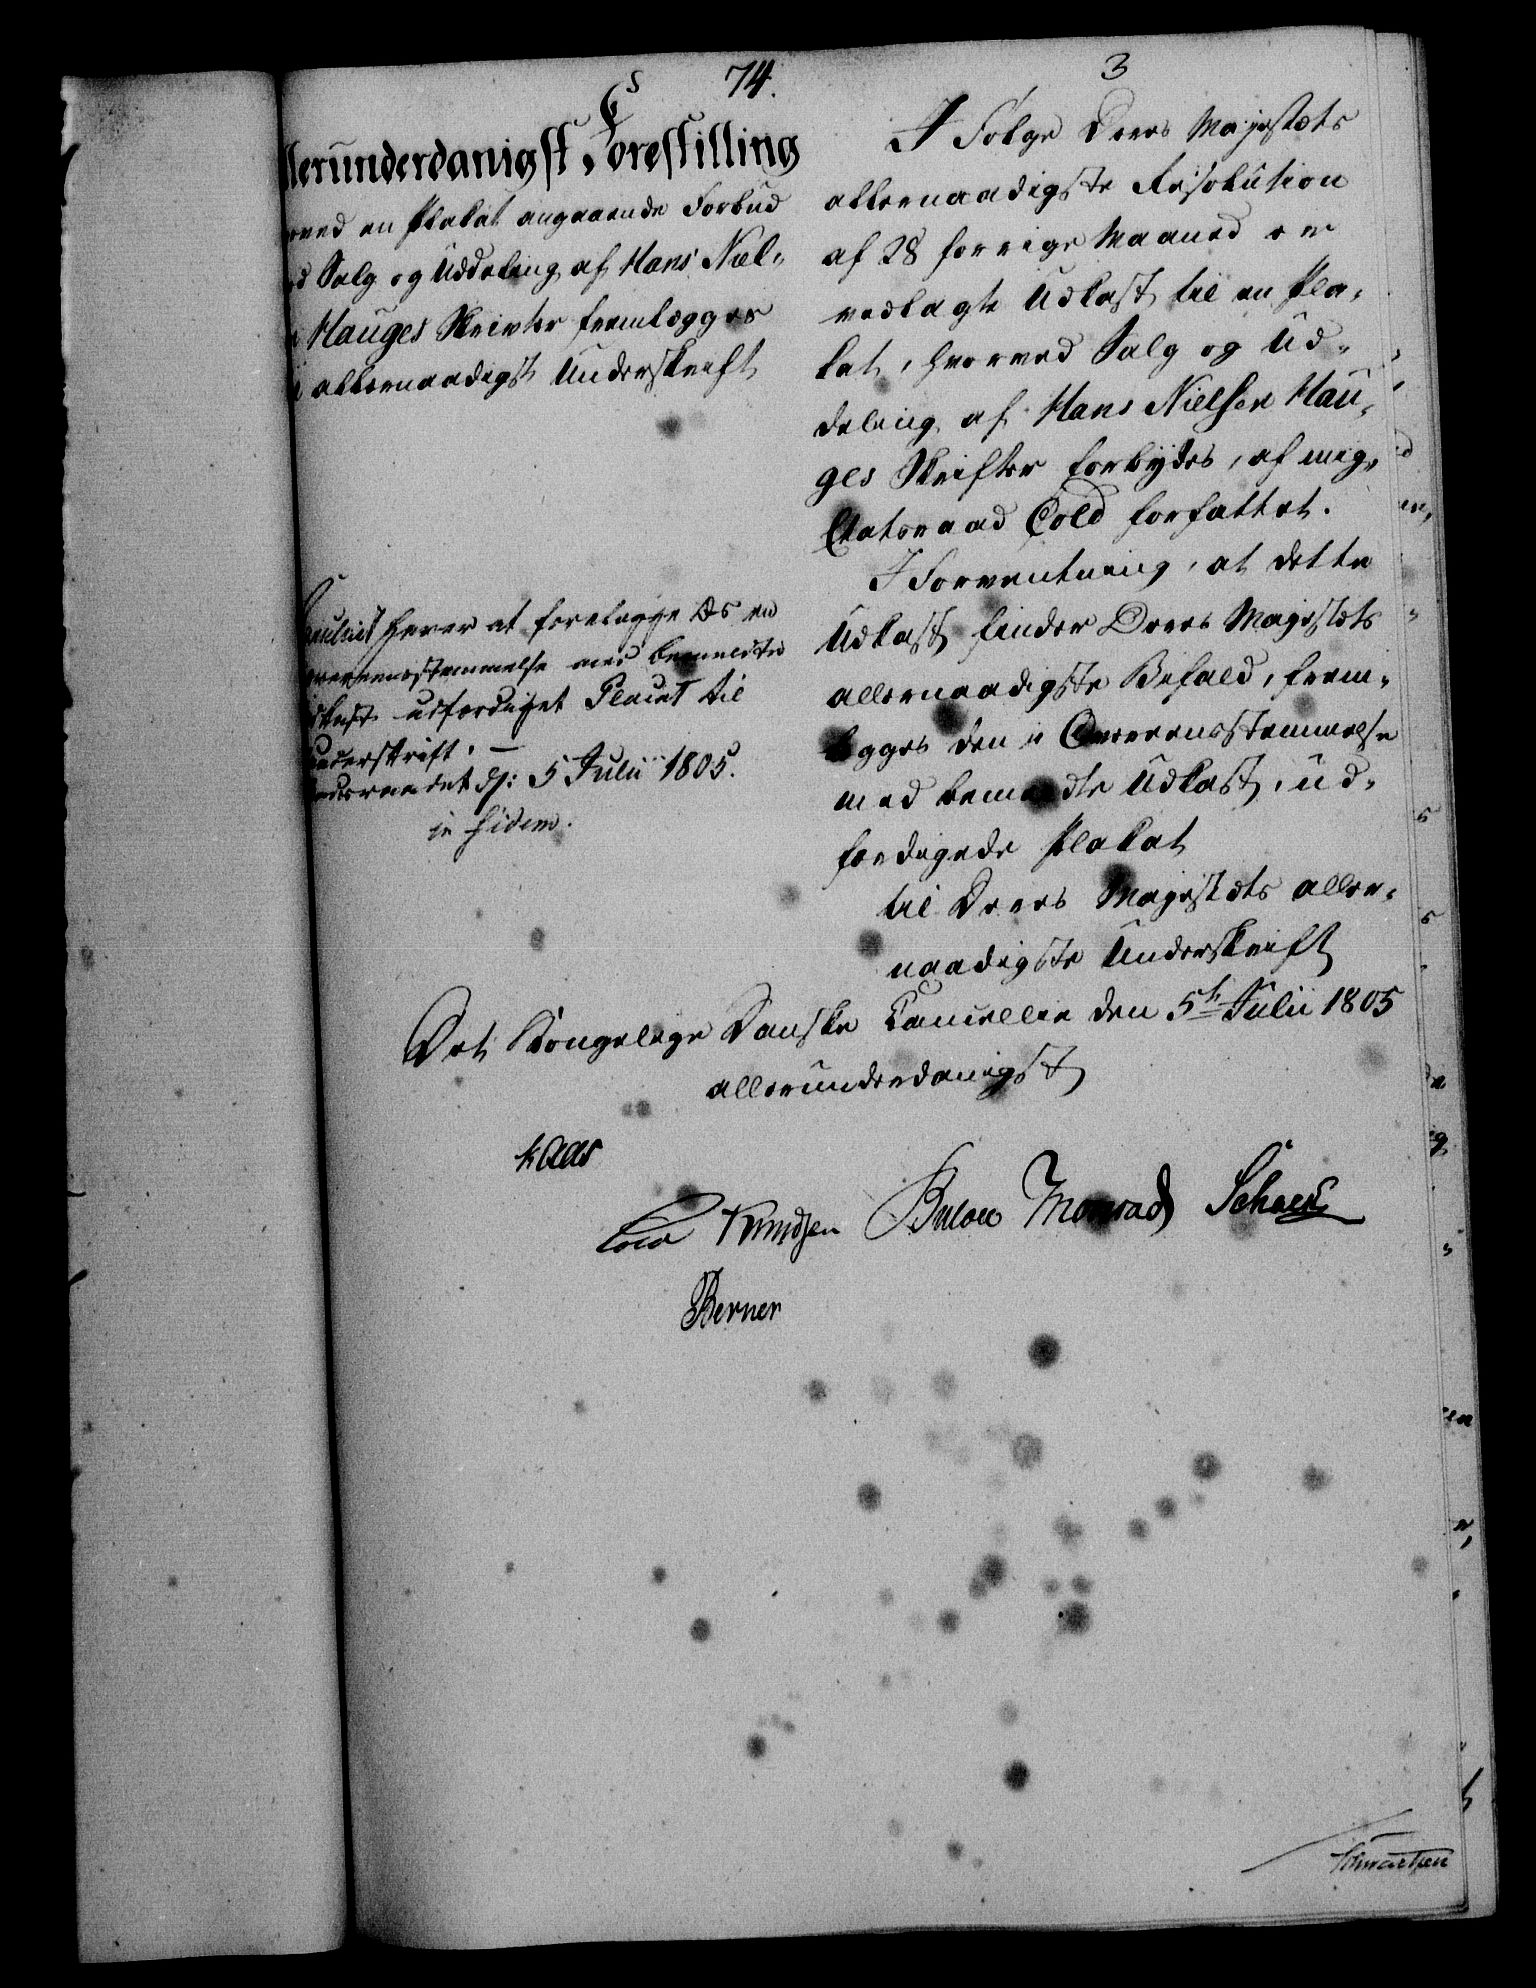 74.
3
llerunderdanigst Forestilling
ved en Plakat angaaende Forbud
Salg og Uddeling af Hans Niel-
Hauges Skrivter fremlægges
allernaadigst Underskrift
I Følge Deres Majestæts
allernaadigste Resolution
af 28 forrige Maaned er
vedlagte Udkast til en Pla-
kat, hvorved Salg og Ud-
deling af Hans Nielsen Hau-
ges Skrifter forbydes, af mig,
Etatsraad Cold forfattet.
I Forventning, at dette
Udkast finder Deres Majestæts
allernaadigste Bifald, frem-
lægges den i Overeensstemmelse
med bemeldte Udkast, ud-
færdigede Plakat
til Deres Majestæts aller-
naadigste Underskrift
haver at forelægge Os en
overeensstemmelse med bemeldte
udfærdiget Placat til
Underskrift. —
d: 5 Julii 1805.
in fidem.
Det Kongelige Danske Cancellie den 5te Julii 1805
allerunderdanigst
Kaas
Cold Knudsen Bülow Monrad Schack
Berner